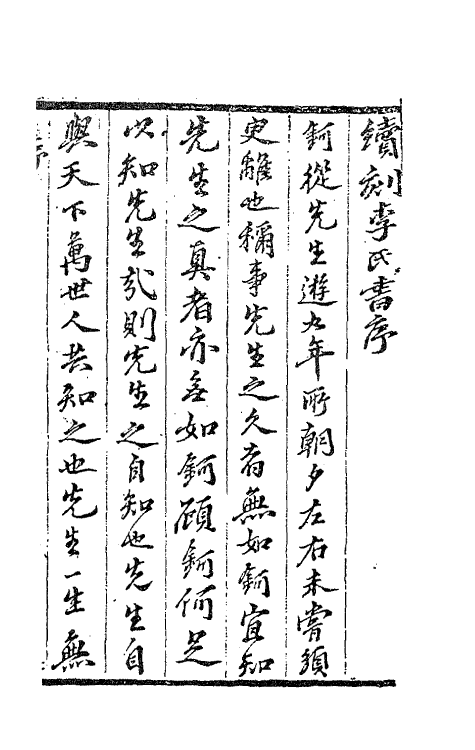 續刻李氏書序
鈳從先生遊九年所朝夕左右未嘗須
臾離也稱事先生之久者無如鈳宜知
先生之真者亦無如鈳顧鈳何足
以知先生哉則先生之自知也先生自
與天下萬世人共知之也先生一生無
序